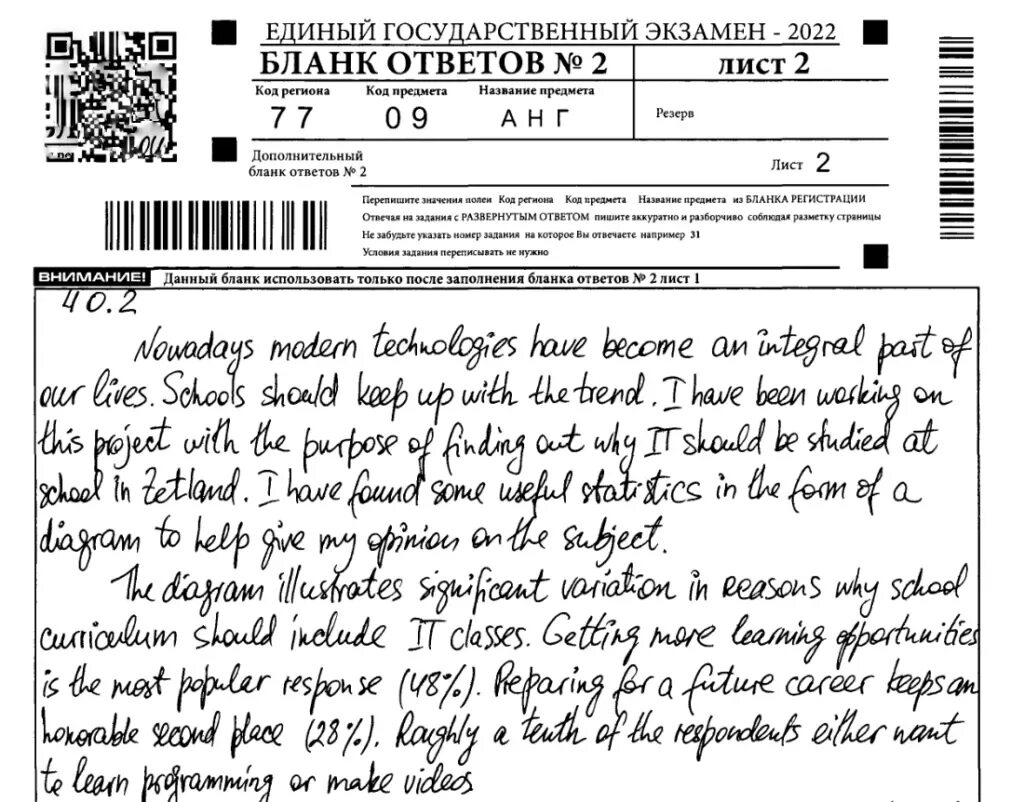 ЕДИНЫЙ ГОСУДАРСТВЕННЫЙ ЭКЗАМЕН - 2022
БЛАНК ОТВЕТОВ № 2 лист 2
Код региона Код предмета Название предмета
77 09 АНГ
Резерв
Дополнительный
бланк ответов № 2
Лист 2
Перепишите значения полей Код региона Код предмета Название предмета из БЛАНКА РЕГИСТРАЦИИ
Отвечая на задания с РАЗВЕРНУТЫМ ОТВЕТОМ пишите аккуратно и разборчиво соблюдая разметку страницы
Не забудьте указать номер задания на которое Вы отвечаете например 31
Условия задания переписывать не нужно
ВНИМАНИЕ! Данный бланк использовать только после заполнения бланка ответов № 2 лист 1
40.2
Nowadays modern technologies have become an integral part of
our lives. Schools should keep up with the trend. I have been working on
this project with the purpose of finding out why IT should be studied at
school in Zetland. I have found some useful statistics in the form of a
diagram to help give my opinion on the subject.
The diagram illustrates significant variation in reasons why school
curriculum should include IT classes. Getting more learning opportunities
is the most popular response (48%). Preparing for a future career keeps an
honorable second place (28%). Roughly a tenth of the respondents either want
to learn programming or make videos